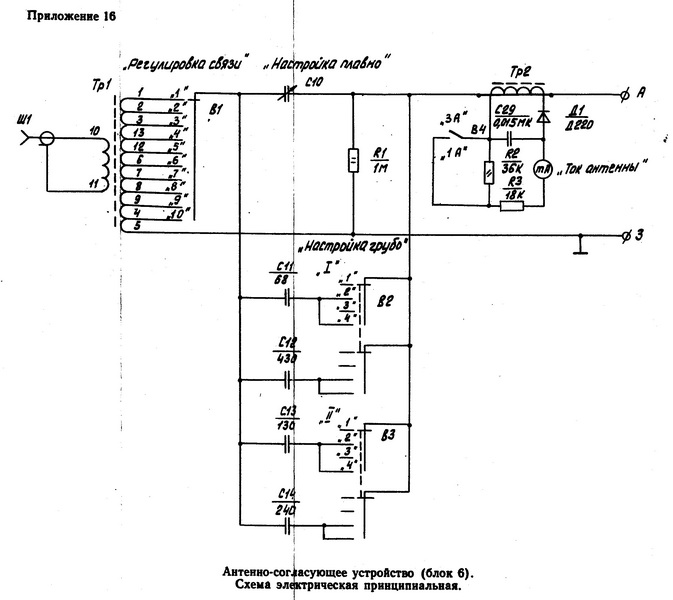 Приложение 16
„Регулировка связи" „Настройка плавно"
Тр1
Ш1
10
11
1 „1"
2 „2"
3 „3"
13 „4"
12 „5"
6 „6"
7 „7"
8 „8"
9 „9"
4 „10"
5
В1
С10
R1
1М
Тр2
С29
0,015МК
Д1
Д220
„3А"
„1А"
В4
R2
36К
R3
18К
mA
„Ток антенны"
А
З
„Настройка грубо"
С11
68
„I"
„1"
„2"
„3"
„4"
В2
С12
430
С13
130
„II"
„1"
„2"
„3"
„4"
В3
С14
240
Антенно-согласующее устройство (блок 6).
Схема электрическая принципиальная.